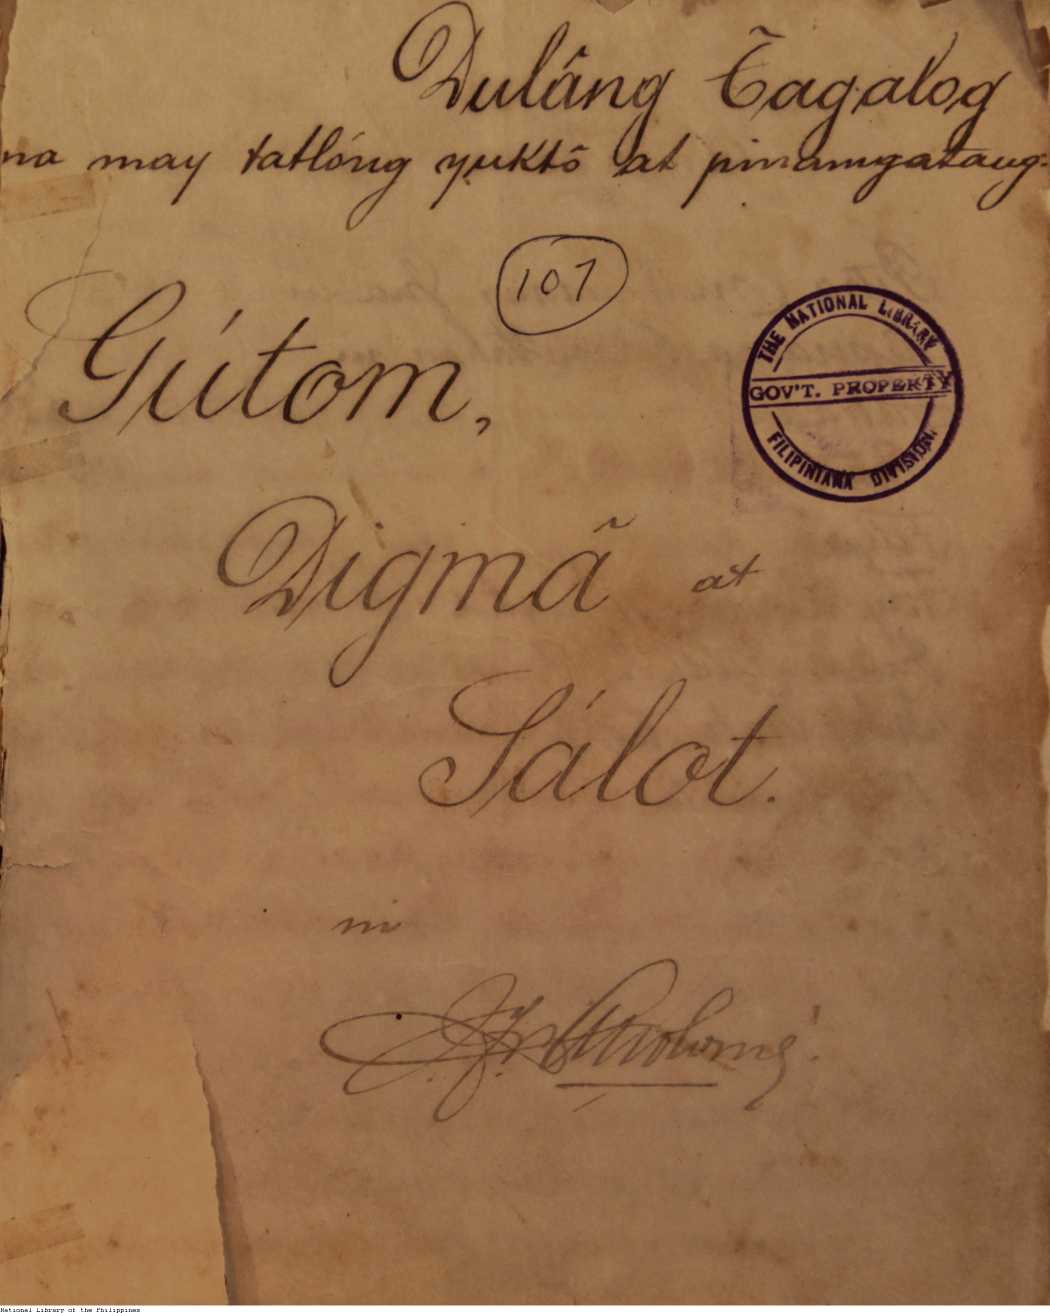 Dulâng Tagalog
na may tatlóng yuktô at pinamgatang:
107
Gútom,
THE NATIONAL LIBRARY
GOV'T. PROPERTY
FILIPINIANA DIVISION.
Digmã at
Sálot.
ni
National Library of the Philippines